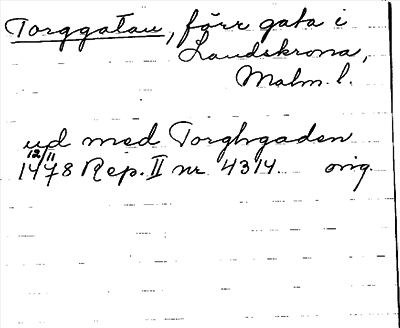 Torggatan, förr gata i
Landskrona,
Malm. l.
ud med Torghgaden
12/11
1478 Rep. II nr 4314 orig.